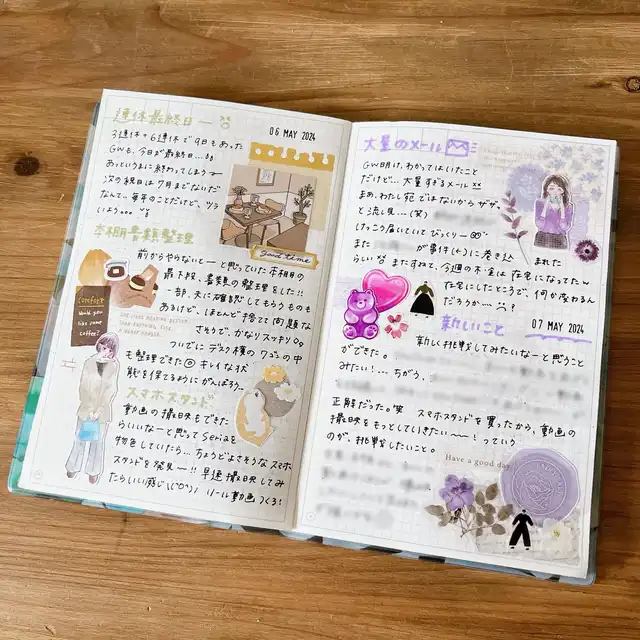 連休最終日ー
06 MAY 2024
3連休+6連休で9日もあった
GWも、今日が最終日…
あっという間に終わってしまうー
次の祝日は7月までないだ
なんて…毎年のことだけど、ツラ
いよう…
good time
本棚書類整理
前からやらないとーと思っていた本棚の
最下段、書類の整理をした!!
一部、夫に確認してもらうものも
あるけど、ほとんど捨てて問題な
さそうで、かなりスッキリ。
ついでにデスク横のワゴンの中
も整理できた◎ キレイな状
態を保てるようにがんばろう…
Would you
like some
coffee?
スマホスタンド
動画の撮影もできた
らいいなーと思ってSeriaを
物色していたら…ちょうどよさそうなスマホ
スタンドを発見ー!! 早速撮影してみ
たらいい感じ リール動画つくろ!
大量のメール
GW明け、わかってはいたこと
だけど…大量すぎるメール
まぁ、わたし宛ではないからザザッ
と流し見…(笑)
けっこう届いていてびっくりー
また が事件(←)に巻き込 まれた
らしい またすねて、今週の木・金は在宅になってたw
在宅にしたところで、何か変わるん
だろうか…?
07 MAY 2024
新しいこと
新しく挑戦してみたいなーと思うこと
ができた。
みたい!…ちがう、
正解だった。笑 スマホスタンドを買ったから、動画の
撮影をもっとしていきたいー!っていう
のが、挑戦したいこと。
Have a good day